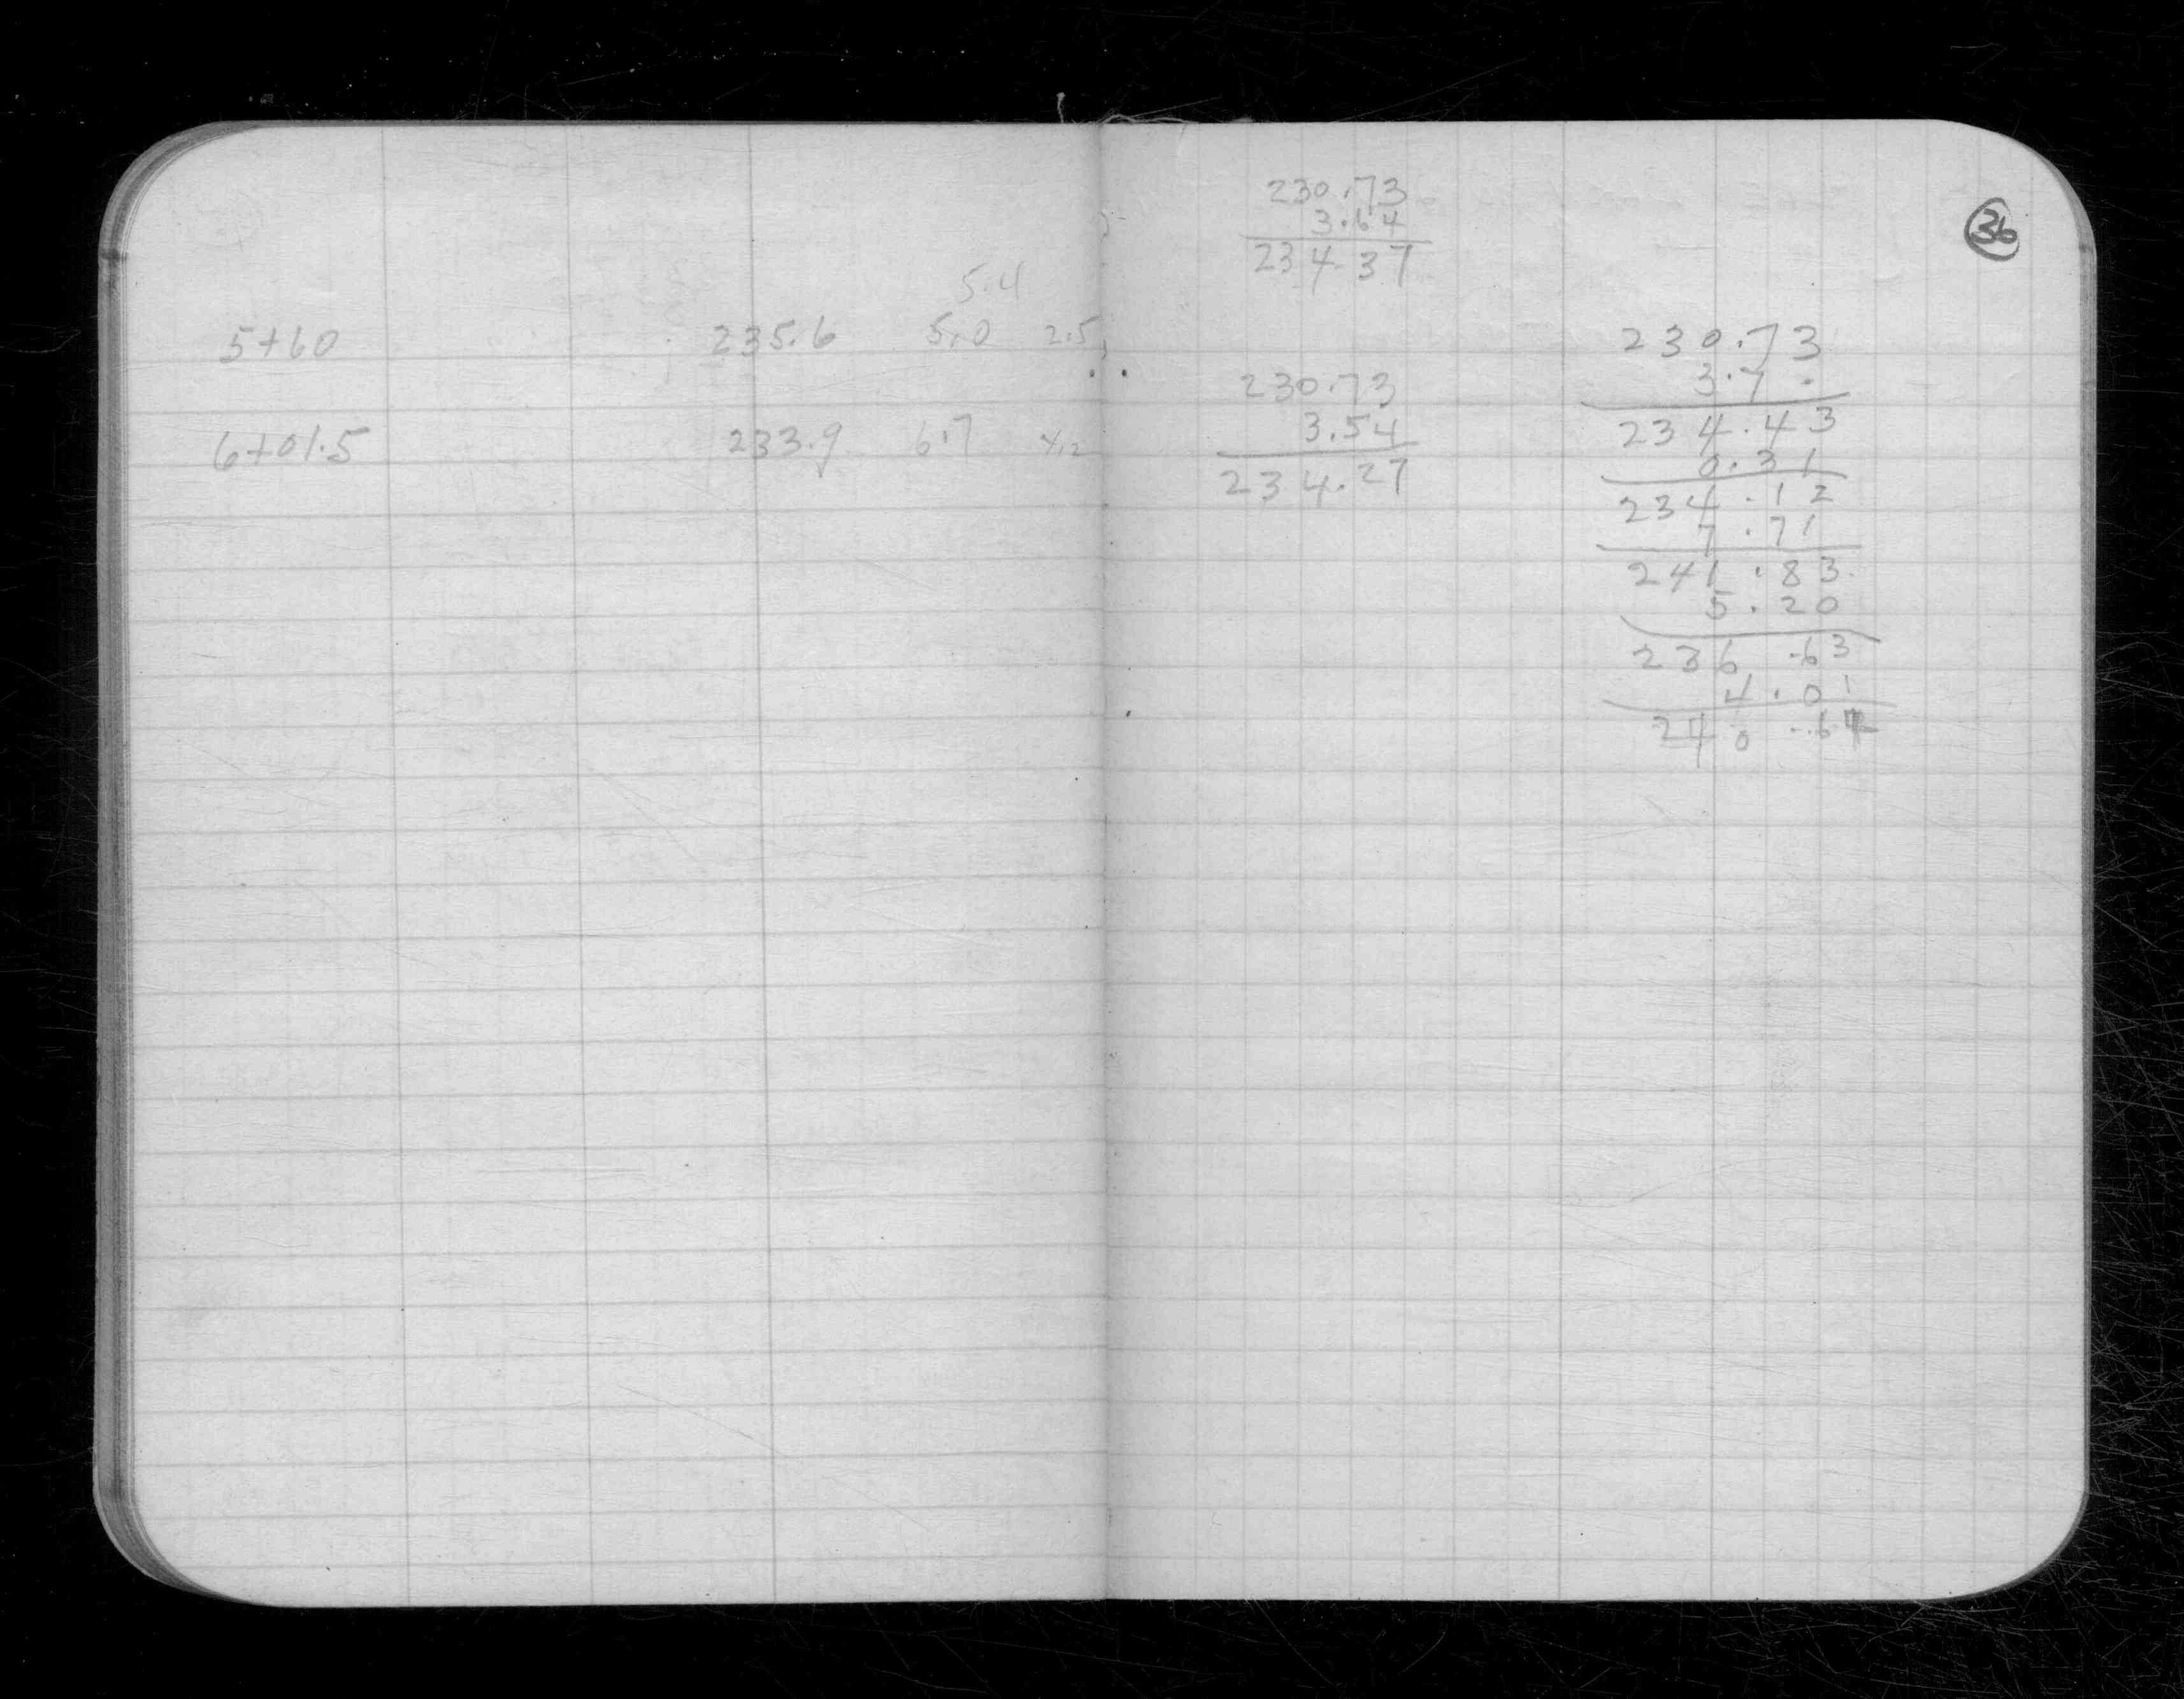 5.4
5+60 235.6 5.0 2.5
6+01.5 233.9 6.7 4.2
36
230.73
3.64
234.37
230.73
3.54
234.27
230.73
3.7
234.43
0.31
234.12
7.71
241.83
5.20
236.63
4.01
240.64